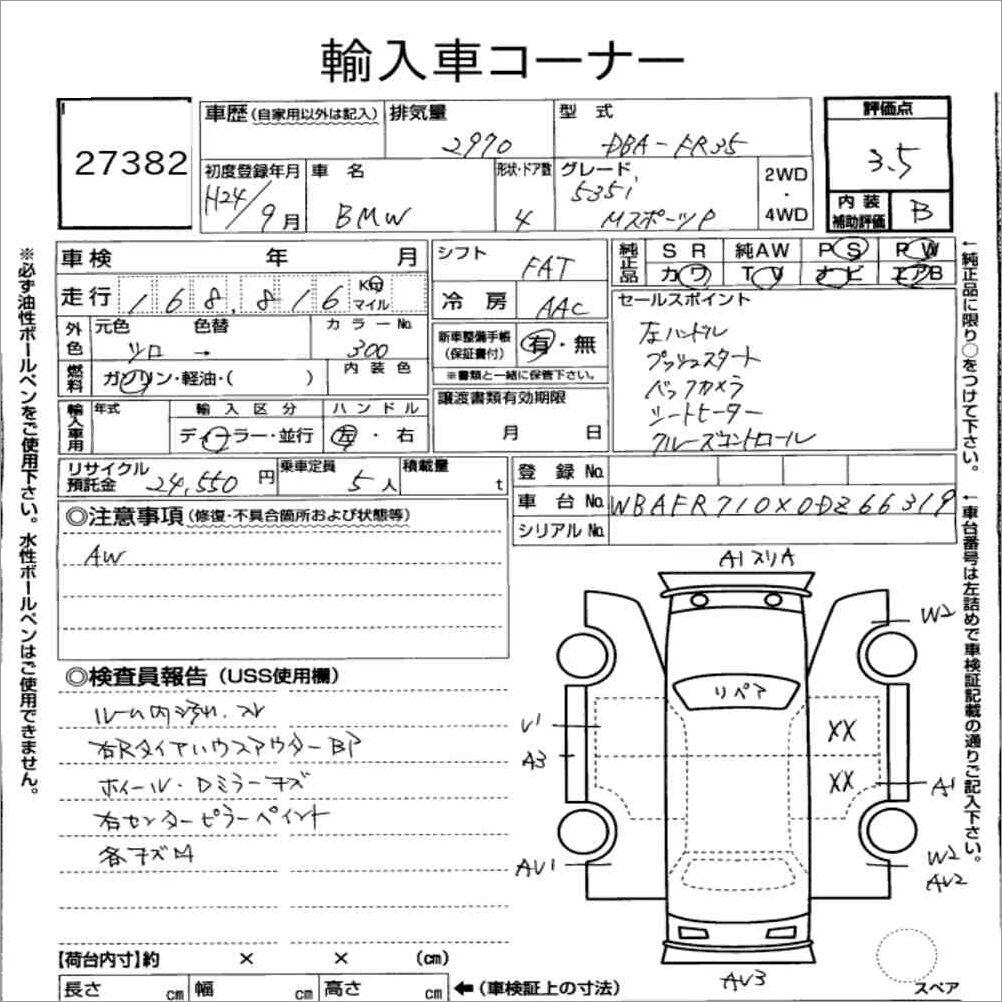 輸入車コーナー
27382
車歴(自家用以外は記入)
排気量
2970
型式
DBA-FR35
評価点
3.5
初度登録年月
H24/9月
車名
BMW
形状・ドア数
4
グレード
535i
MスポーツP
2WD
・
4WD
内装
補助評価
B
車検 年 月
走行 168,816 Km マイル
シフト
FAT
冷房
AAC
純正品
SR 純AW PS PW
カワ TV ナビ エアB
外色
元色 色替
クロ →
カラーNo.
300
新車整備手帳
(保証書付)
有・無
※書類と一緒に保管下さい。
燃料
ガソリン・軽油・( )
内装色
輸入車用
年式
輸入区分
ディーラー・並行
ハンドル
左・右
譲渡書類有効期限
月 日
セールスポイント
左ハンドル
プッシュスタート
バックカメラ
シートヒーター
クルーズコントロール
リサイクル
預託金
24,550円
乗車定員
5人
積載量
t
登録No.
車台No.
WBAFR710X0DZ66319
シリアルNo.
◎注意事項(修復・不具合箇所および状態等)
AW
◎検査員報告(USS使用欄)
ルーム内汚れ、スレ
右RタイヤハウスアウターBP
ホイール・Dミラーキズ
右センターピラーペイント
各キズ凹
A1スリA
W2
リペア
U1
XX
A3
XX
A1
AU1
W2
AU2
AU3
スペア
【荷台内寸】約 × × (cm)
長さ cm 幅 cm 高さ cm ←(車検証上の寸法)
※必ず油性ボールペンをご使用下さい。水性ボールペンはご使用できません。
←純正品に限り○をつけて下さい。
←車台番号は左詰めで車検証記載の通りご記入下さい。